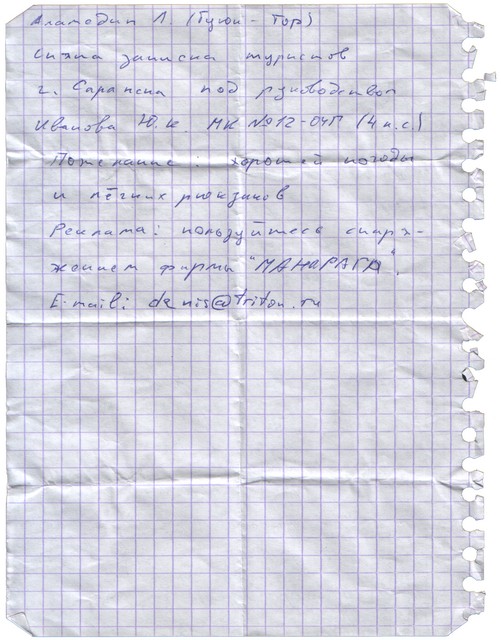 Аламедин Л. (Туюк-Тор)
снята записка туристов
г. Саранска под руководством
Иванова Ю.К. МК №12-04П (4 к.с.)
Пожелание: хорошей погоды
и лёгких рюкзаков
Реклама: пользуйтесь снаря-
жением фирмы "МАНАРАГА".
E-mail: denis@triton.ru